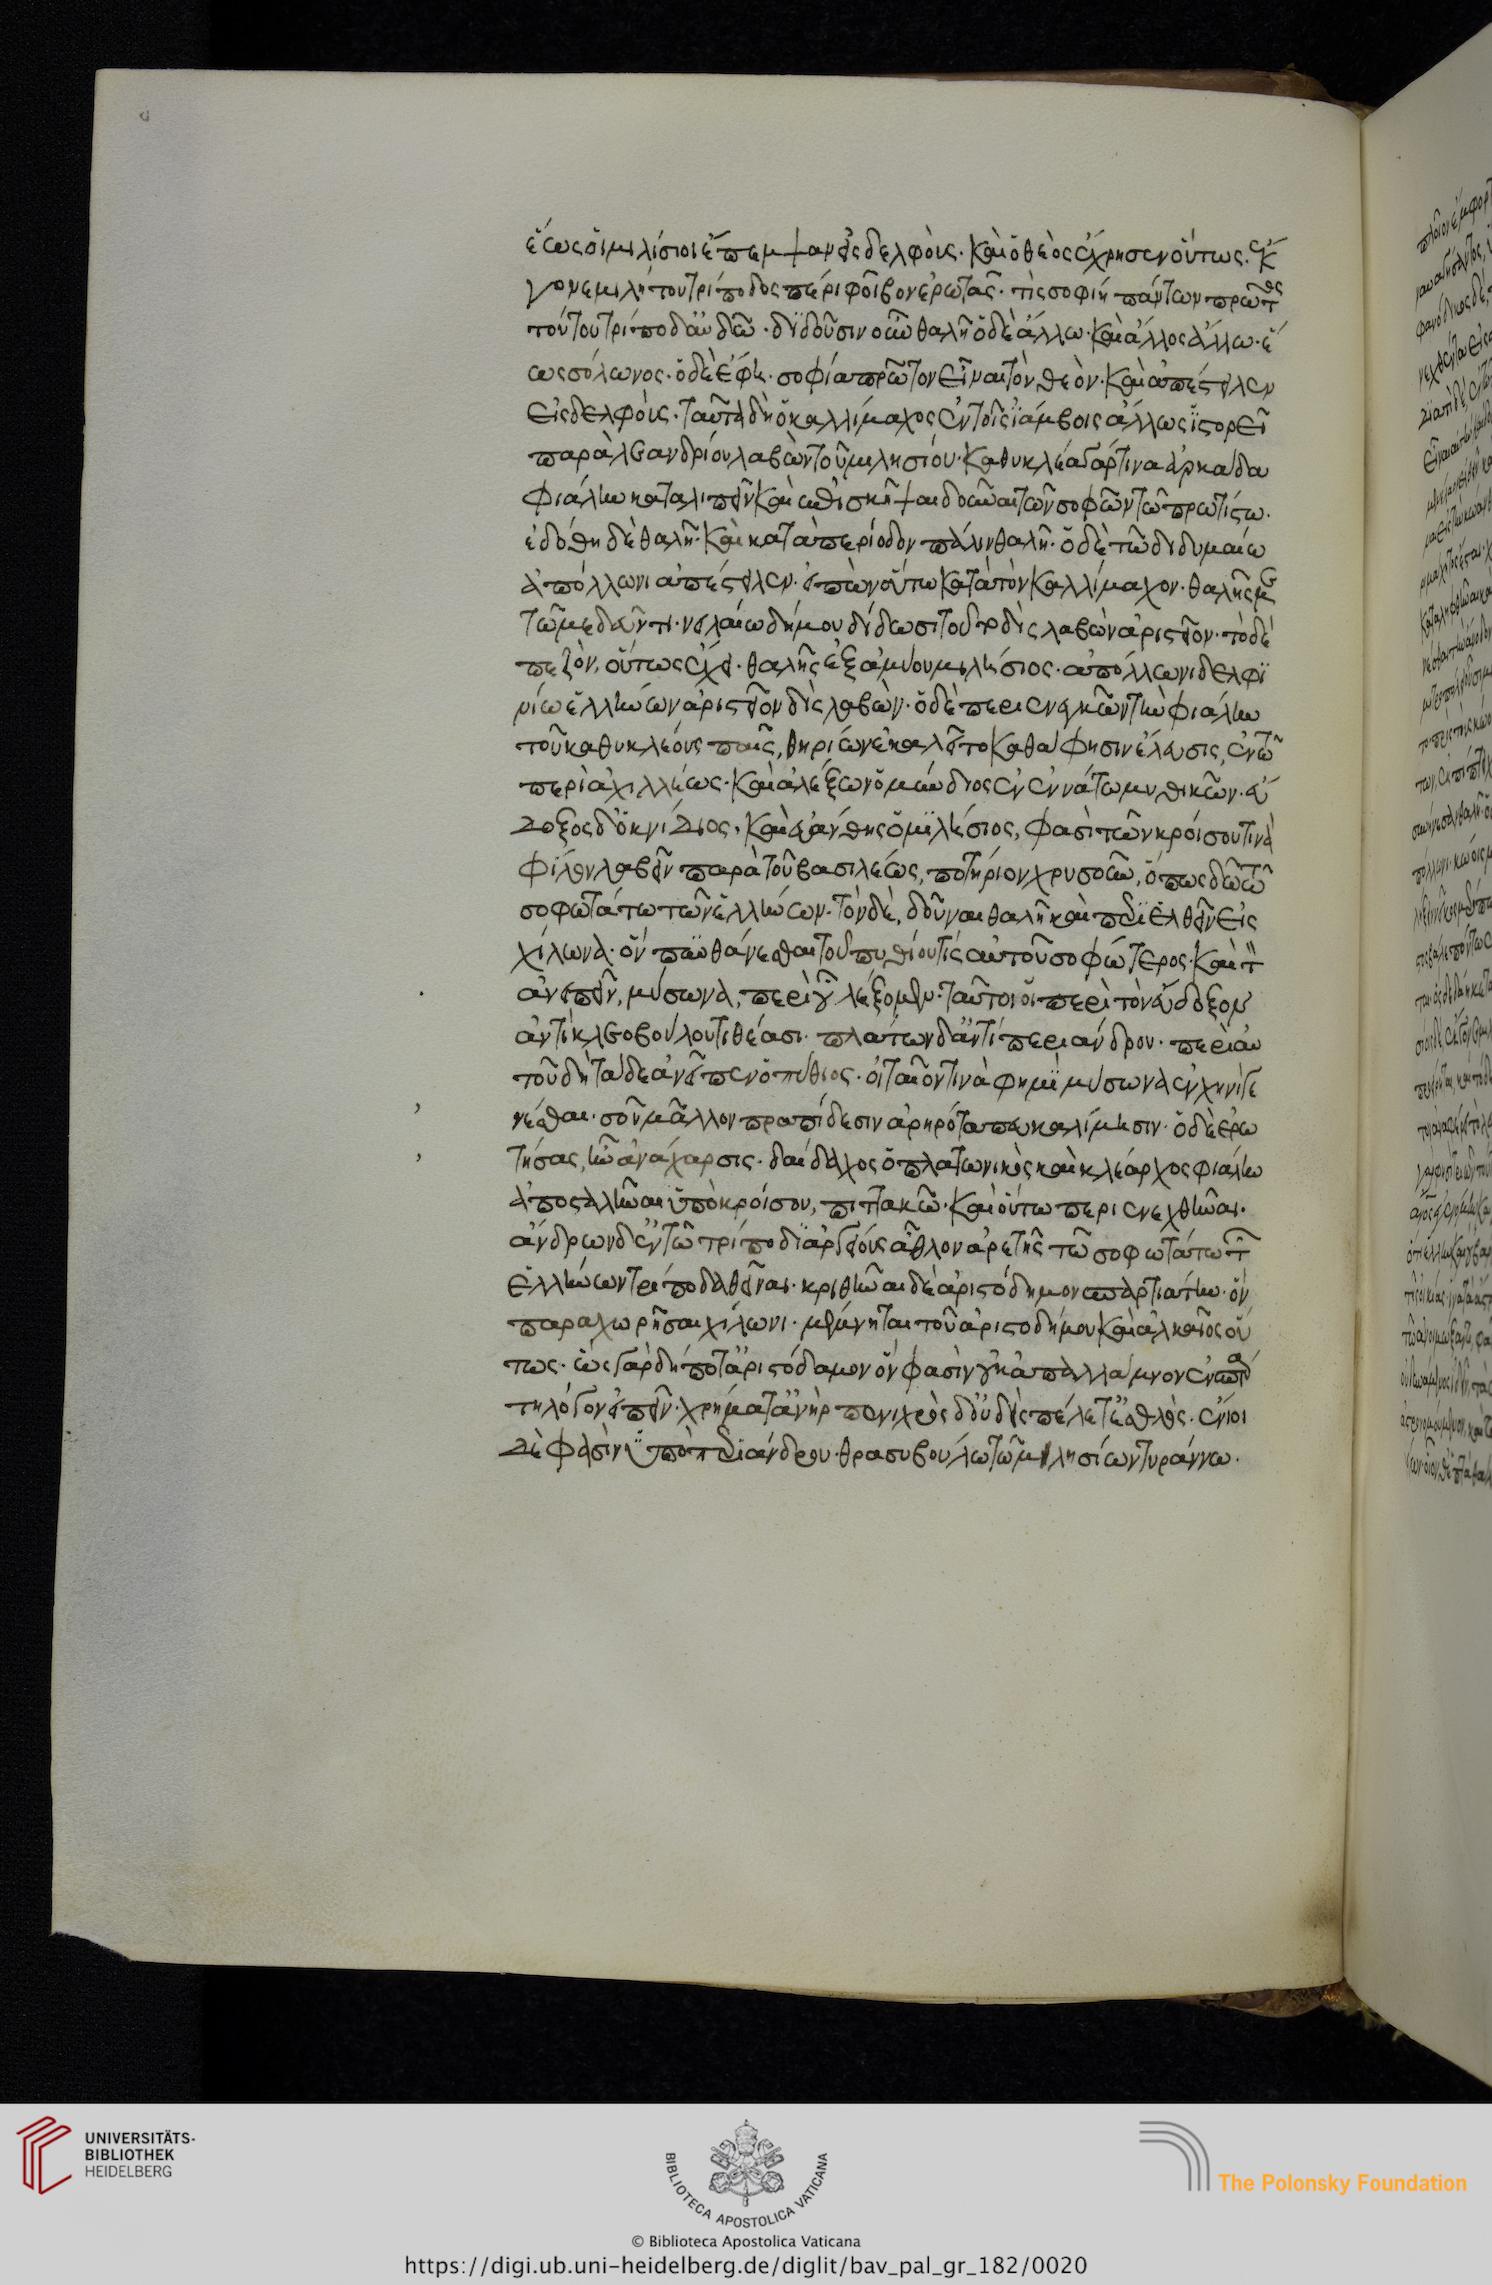 ἕως οἱ μιλίσιοι ἔπεμψαν εἰς δελφοὺς. καὶ ὁ θεὸς ἔχρησεν οὕτως. ἔκ
γονε μιλήτου τρίποδος πέρι φοῖβον ἐρωτᾶς. τὶς σοφίη πάντων πρῶτος
τούτου τρίποδ' αὐδῶ. διδοῦσιν οὖν θαλῆ ὁ δὲ ἄλλω. καὶ ἄλλος ἄλλω. ἕ
ως σόλωνος. ὁ δὲ ἔφη. σοφία πρῶτον εἶναι τὸν θεὸν. καὶ ἀπέστειλεν
εἰς δελφοὺς. ταῦτα δὴ ὁ καλλίμαχος ἐν τοῖς ἰάμβοις ἄλλως ἱστορεῖ
παρὰ λεανδρίου λαβὼν τοῦ μιλησίου. βαθυκλέα γάρ τινα ἀρκάδα
φιάλην καταλιπεῖν καὶ ἐπισκῆψαι δοῦναι τῶν σοφῶν τῶ πρωτίστω.
ἐδόθη δὲ θαλῆ. καὶ κατὰ περίοδον πάλιν θαλῆ. ὁ δὲ τῶ διδυμαίω
ἀπόλλωνι ἀπέστειλεν. εἰπὼν οὕτω κατὰ τὸν καλλίμαχον. θαλῆς με
τῶ μεδεῦντι νειλαίω δήμου δίδωσι τοῦτο δὶς λαβὼν ἀριστεῖον. τὸ δὲ
πεζὸν, οὕτως ἔχει. θαλῆς ἐξαμύου μιλήσιος. ἀπόλλωνι δελφι
νίω ἑλλήνων ἀριστεῖον δὶς λαβὼν. ὁ δὲ περιενεγκῶν τὴν φιάλην
τοῦ βαθυκλέους παῖς, θηρίων ἐκαλεῖτο καθά φησιν ἔλευσις, ἐν τῶ
περὶ ἀχιλλέως. καὶ ἀλέξων ὁ μύνδιος ἐν ἐννάτω μυθικῶν. εὔ
δοξος δ' ὁ κνίδιος, καὶ εὐάνθης ὁ μιλήσιος, φασὶ τῶν κροίσου τινὰ
φίλων λαβεῖν παρὰ τοῦ βασιλέως, ποτήριον χρυσοῦν, ὅπως δῶ τῶ
σοφωτάτω τῶν ἑλλήνων. τὸν δὲ, δοῦναι θαλῆ καὶ περιελθεῖν εἰς
χίλωνα. ὃν πυνθάνεσθαι τοῦ πυθίου τίς αὐτοῦ σοφώτερος. καὶ τὸν
ἀνειπεῖν, μύσωνα, περὶ οὗ λέξομεν. τοῦτον οἱ περὶ τὸν εὔδοξον
ἀντὶ κλεοβούλου τιθέασι. πλάτων δ' ἀντὶ περιάνδρου. περὶ αὐ
τοῦ δὴ τάδε ἀνεῖπεν ὁ πύθιος. οἰταῖον τινὰ φημὶ μύσωνα ἐν χηνὶ γε
νέσθαι. σοῦ μᾶλλον πραπίδεσιν ἀρηρότα πευκαλίμησιν. ὁ δὲ ἐρω
τήσας, ἦν ἀνάχαρσις. δαίδαχος ὁ πλατωνικὸς καὶ κλέαρχος φιάλην
ἀποσταλῆναι ὑπὸ κροίσου, πιττακῶ. καὶ οὕτω περιενεχθῆναι.
ἄνδρων δ' ἐν τῶ τρίποδι ἀργείους ἆθλον ἀρετῆς τῶ σοφωτάτω τῶν
ἑλλήνων τρίποδα θεῖναι. κριθῆναι δὲ ἀριστόδημον σπαρτιάτην. ὃν
παραχωρῆσαι χίλωνι. μέμνηται τοῦ ἀριστοδήμου καὶ ἀλκαῖος οὕ
τως. ὡς γὰρ δή ποτ' ἀριστόδαμον ὃν φασὶν οὐκ ἀπάλλαμνον ἐν σπάρ
τη λόγον εἰπεῖν. χρήματ' ἀνὴρ πενιχρὸς δ' οὐδεὶς πέλετ' ἐσθλὸς. ἔνιοι
δὲ φασὶν ὑπὸ περιάνδρου. θρασυβούλω τῶ μιλησίων τυράννω.
UNIVERSITÄTS-
BIBLIOTHEK
HEIDELBERG
BIBLIOTECA APOSTOLICA VATICANA
The Polonsky Foundation
© Biblioteca Apostolica Vaticana
https://digi.ub.uni-heidelberg.de/diglit/bav_pal_gr_182/0020